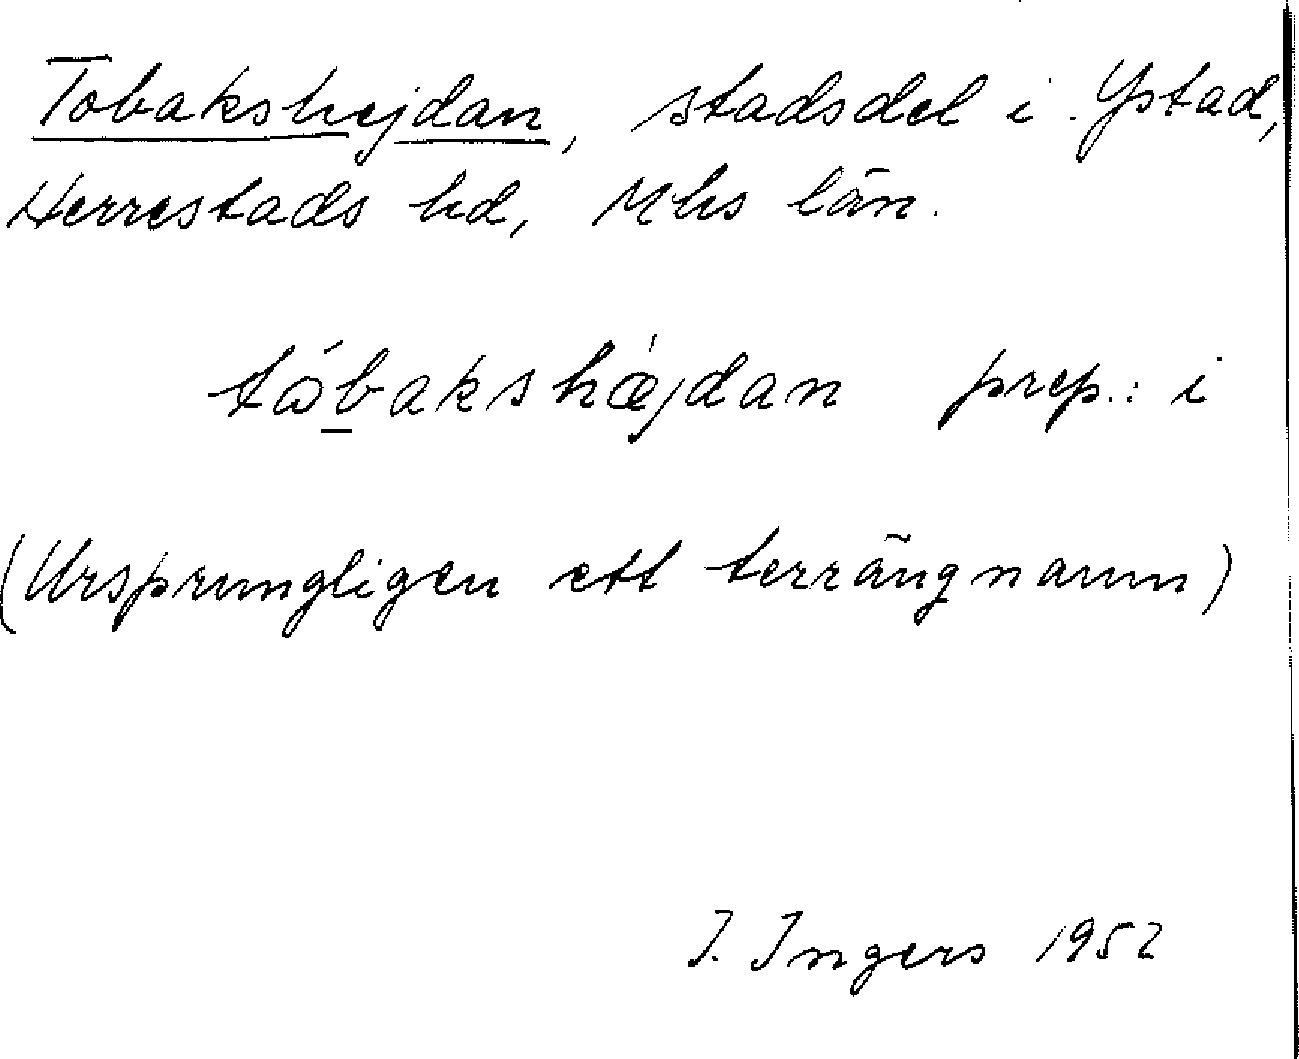 Tobakshejdan, stadsdel i Ystad,
Herrestads hd, Mhs län.
tóbakshæ̀jdan prep.: i
(Ursprungligen ett terrängnamn)
I. Ingers 1952